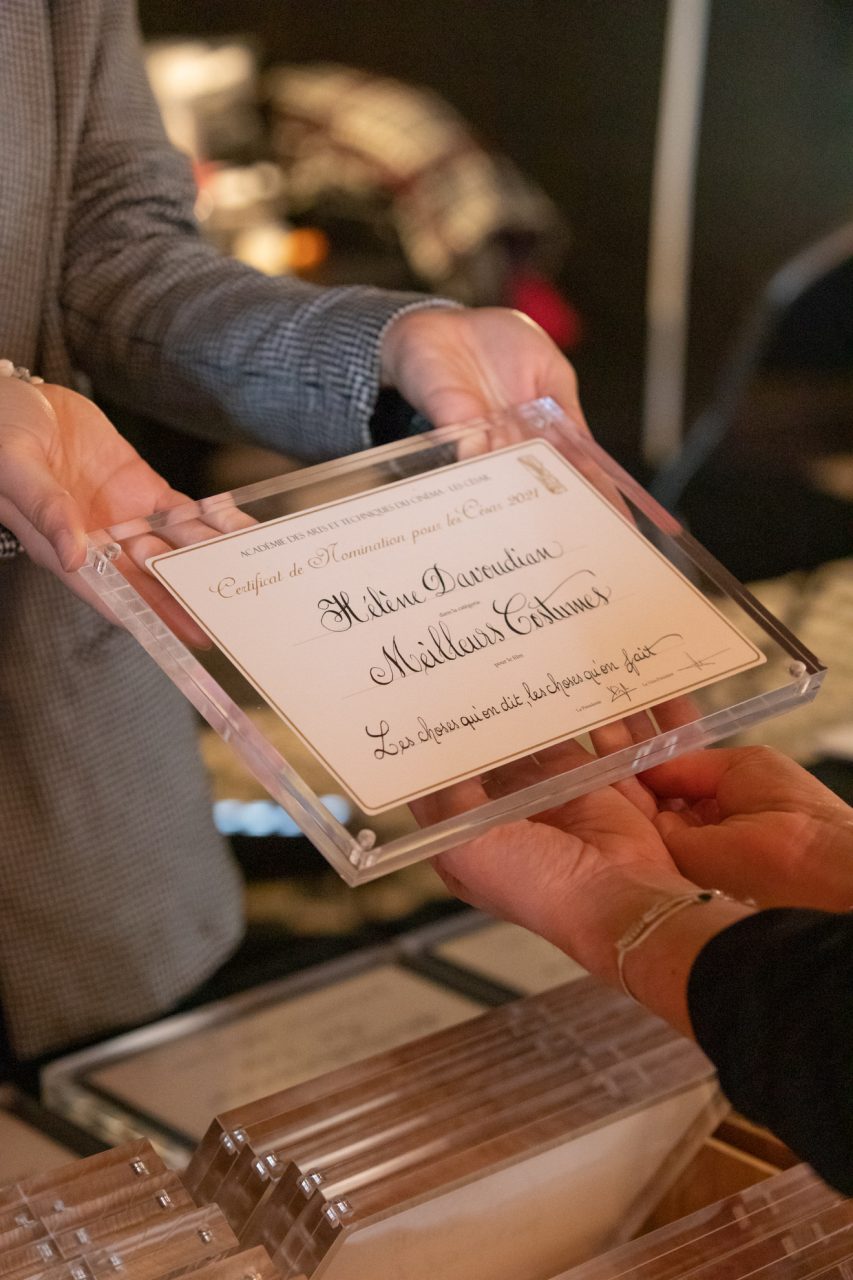 ACADÉMIE DES ARTS ET TECHNIQUES DU CINÉMA - LES CÉSAR
Certificat de Nomination pour les César 2021
Hélène Davoudian
dans la catégorie
Meilleurs Costumes
pour le film
Les choses qu'on dit, les choses qu'on fait
La Présidente
Le Vice-Président